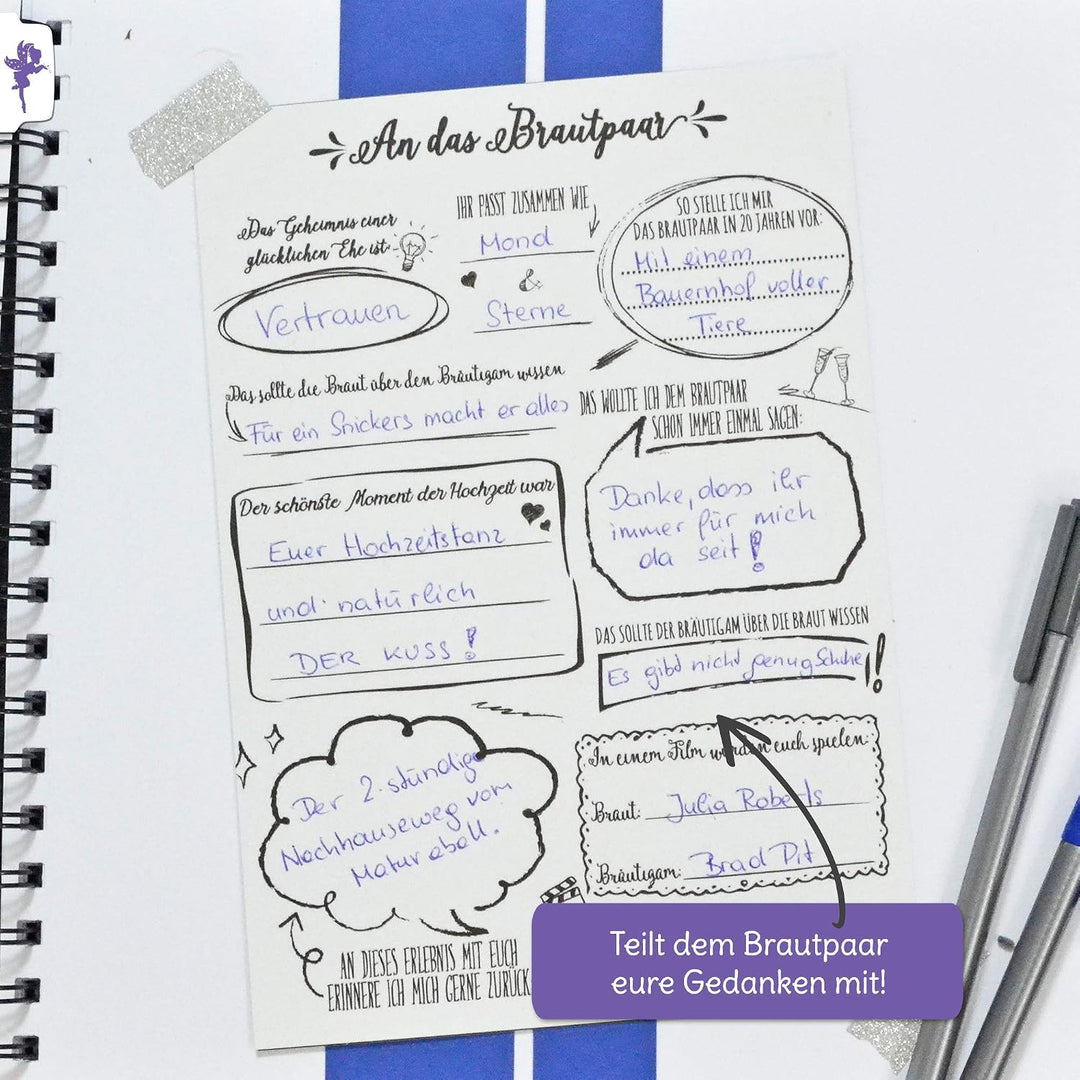 An das Brautpaar
Das Geheimnis einer
glücklichen Ehe ist
Vertrauen
IHR PASST ZUSAMMEN WIE
Mond
&
Sterne
SO STELLE ICH MIR
DAS BRAUTPAAR IN 20 JAHREN VOR:
Mit einem
Bauernhof voller
Tiere
Das sollte die Braut über den Bräutigam wissen
Für ein Snickers macht er alles
DAS WOLLTE ICH DEM BRAUTPAAR
SCHON IMMER EINMAL SAGEN:
Danke, dass ihr
immer für mich
da seit!
Der schönste Moment der Hochzeit war
Euer Hochzeitstanz
und natürlich
DER KUSS!
DAS SOLLTE DER BRÄUTIGAM ÜBER DIE BRAUT WISSEN
Es gibt nicht genug Schuhe!
Der 2-stündige
Nachhauseweg vom
Maturaball.
AN DIESES ERLEBNIS MIT EUCH
ERINNERE ICH MICH GERNE ZURÜCK
In einem Film würden euch spielen:
Braut: Julia Roberts
Bräutigam: Brad Pit
Teilt dem Brautpaar
eure Gedanken mit!